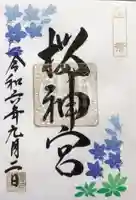 桜神宮
令和六年九月二日